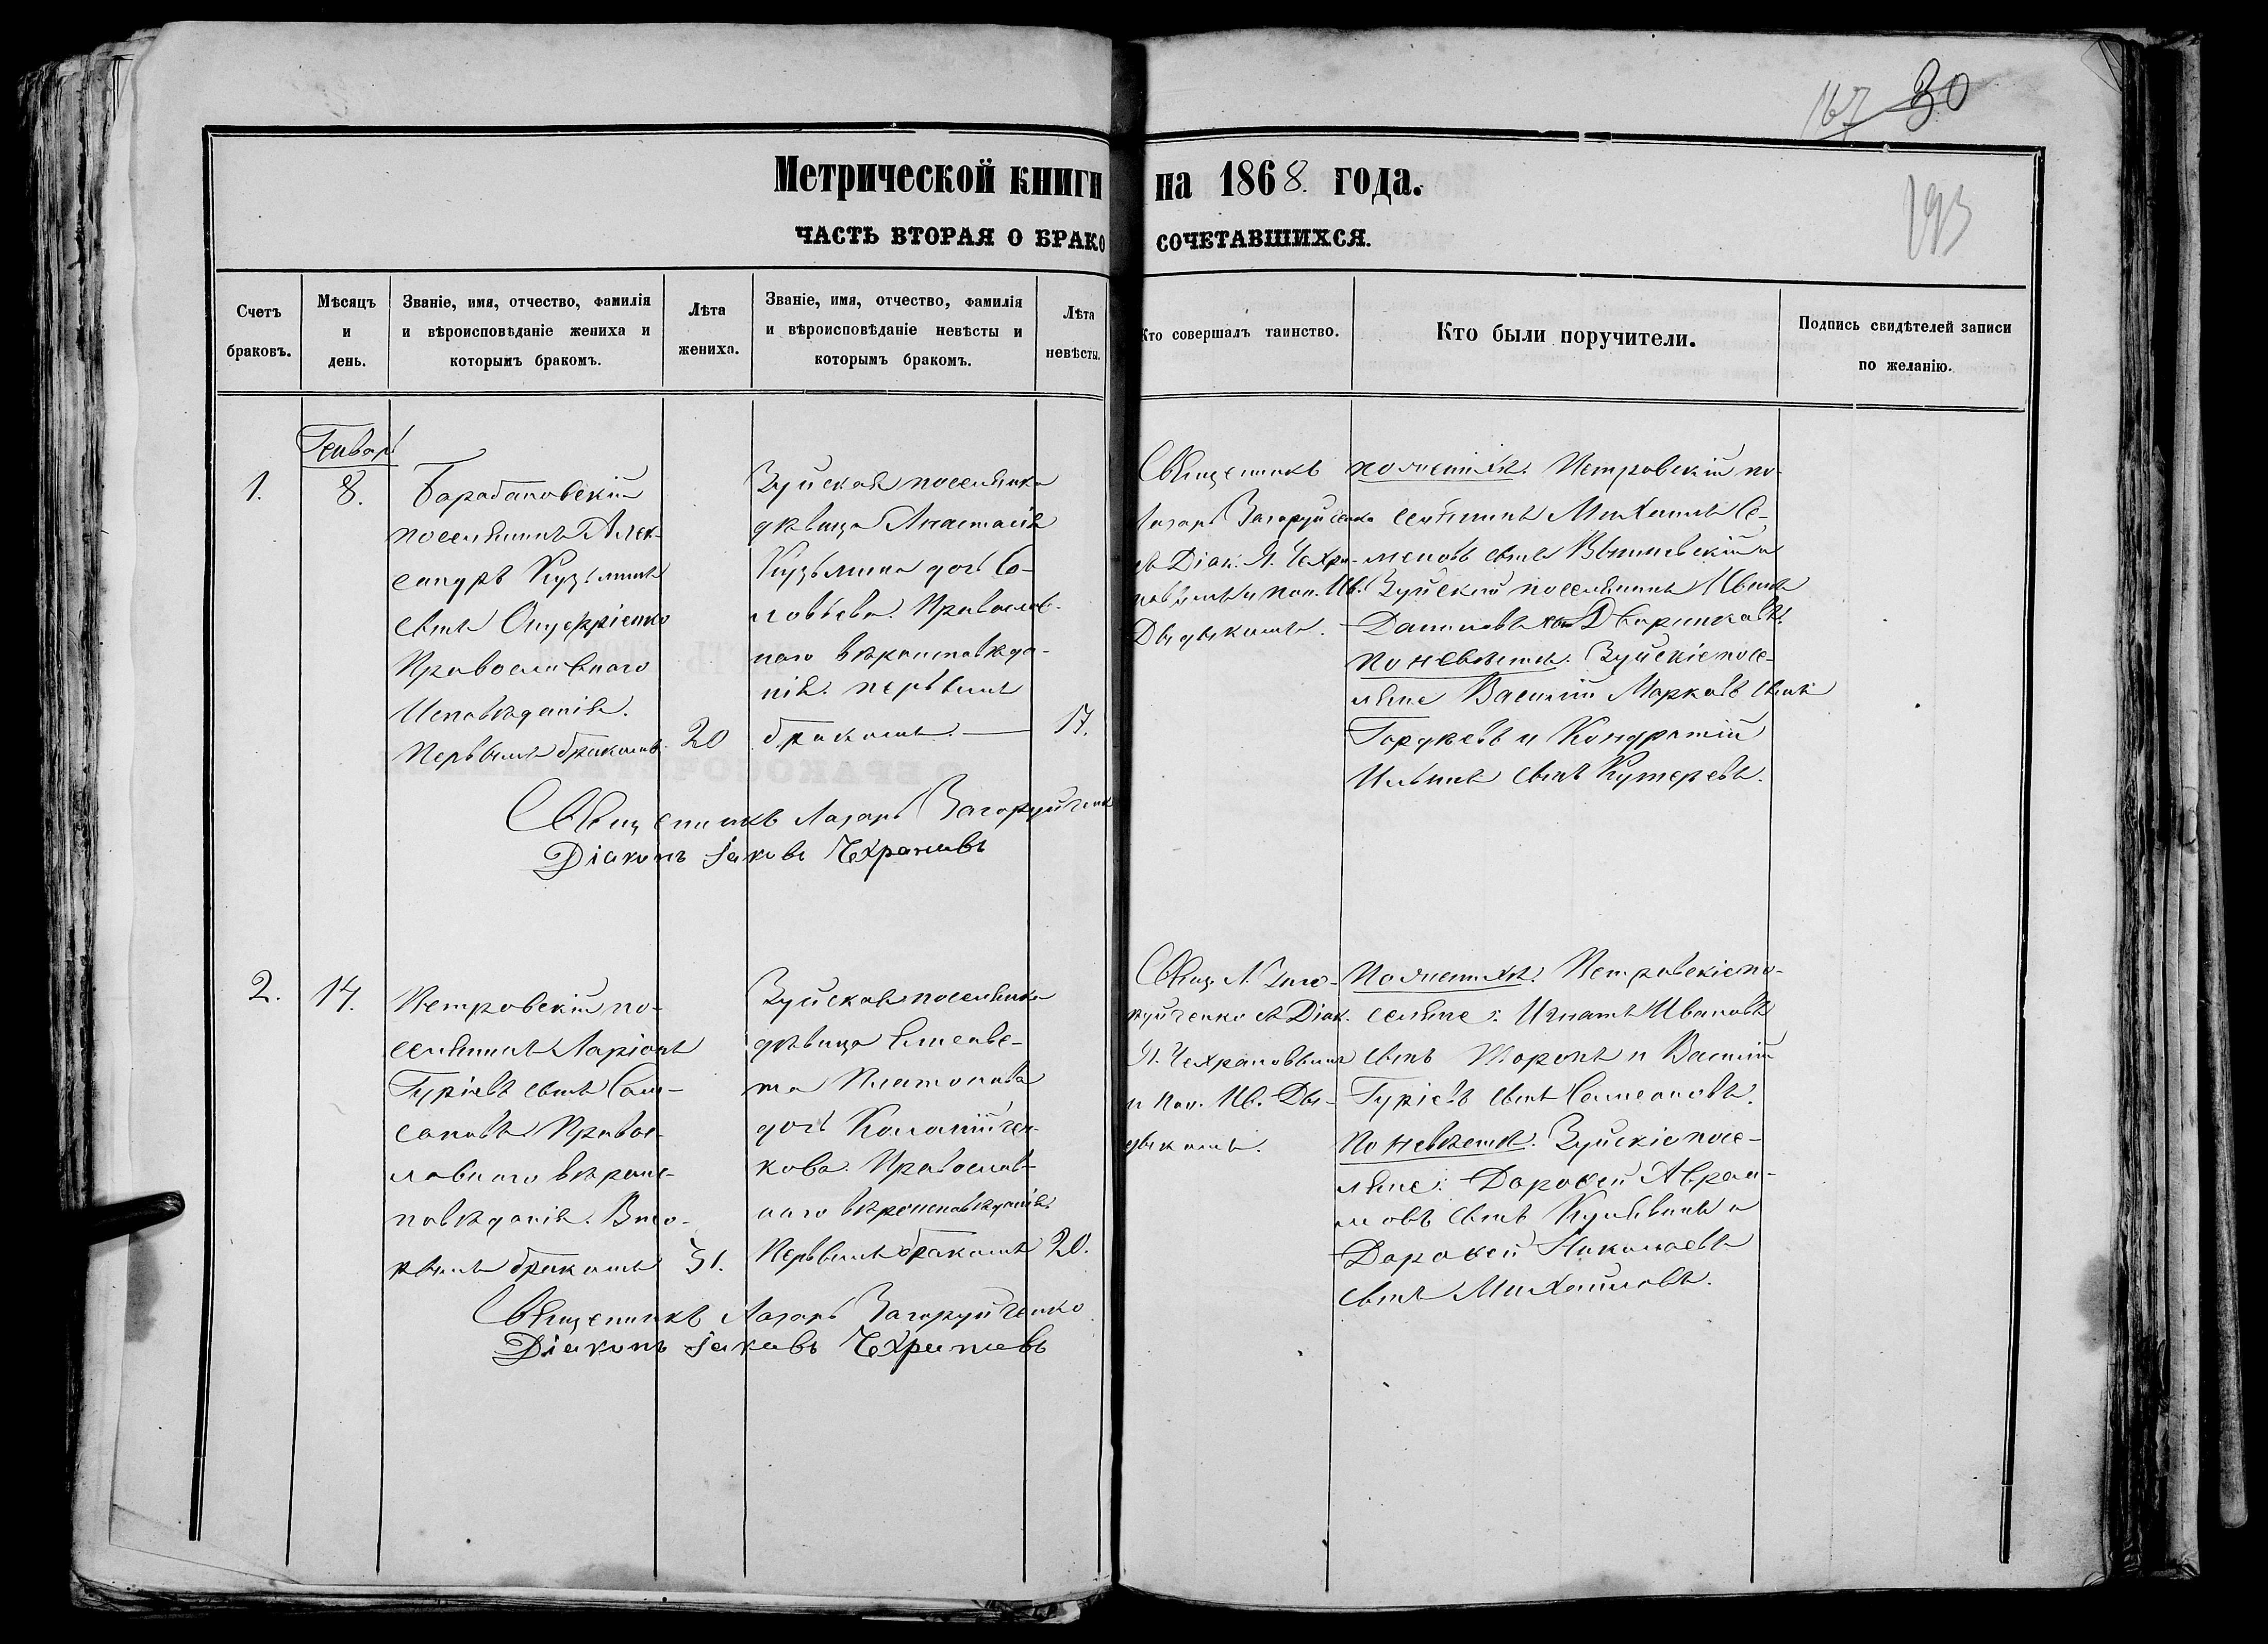 167 30
193
Метрической книги на 1868. года.
ЧАСТЬ ВТОРАЯ О БРАКОСОЧЕТАВШИХСЯ.
Счетъ браковъ.
Мѣсяцъ и день.
Званіе, имя, отчество, фамилія
и вѣроисповѣданіе жениха и
которымъ бракомъ.
Лѣта жениха.
Званіе, имя, отчество, фамилія
и вѣроисповѣданіе невѣсты и
которымъ бракомъ.
Лѣта невѣсты.
Кто совершалъ таинство.
Кто были поручители.
Подпись свидѣтелей записи
по желанію.
Генварь
1.
8.
Барабановскій
поселянинъ Алек-
сандръ Кузьминъ
сынъ Онуфріенко
Православнаго
Исповѣданія.
Первымъ бракомъ.
20
Зуйская поселянка
дѣвица Анастасія
Кузьмина дочь Со-
ловьева. Православ-
наго вѣроисповѣда-
нія. первымъ
бракомъ.
17.
Священникъ
Лазарь Загоруйченко
съ Діак. Я. Чехра-
новымъ и пон. Ив.
Дьядькомъ.
по женихѣ. Петровскій по-
селянинъ Михаилъ Се-
меновъ сынъ и
Зуйскій поселянинъ Иванъ
Даниловъ Дворниковъ.
по невѣстѣ. Зуйскіе посе-
ляне Василій Марковъ сынъ
Гордѣевъ и Кондратій
Ильинъ сынъ Кутеревъ.
Священникъ Лазарь Загоруйченко
Діаконъ Іаковъ Чехрановъ
2.
14.
Петровскій по-
селянинъ Ларіонъ
Гурієвъ сынъ Сам-
соновъ Правос-
лавнаго вѣроис-
повѣданія. Вто-
рымъ бракомъ
31.
Зуйская поселянка
дѣвица Елисаве-
та Платонова
дочь Коломійчен-
кова. Православ-
наго вѣроисповѣданія.
Первымъ бракомъ
20.
Свящ. Л. Заго-
руйченко съ Діак.
Я. Чехрановымъ
и Пон. Ив. Дья-
дькомъ.
По женихѣ. Петровскіе по-
селяне: Игнатъ Ивановъ
сынъ и Василій
Гурієвъ сынъ Самсоновъ.
По невѣстѣ. Зуйскіе посе-
ляне: Дорофей Авраа-
мовъ сынъ и
Дорофей Николаевъ
сынъ Михайловъ.
Священникъ Лазарь Загоруйченко
Діаконъ Іаковъ Чехрановъ